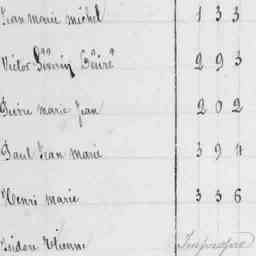 Jean marie michel 1 3 3
Victor Séverin Désiré 2 9 3
Pierre marie Jean 2 0 2
Paul Jean marie 3 9 4
Henri marie 3 3 6
Isidore Etienne